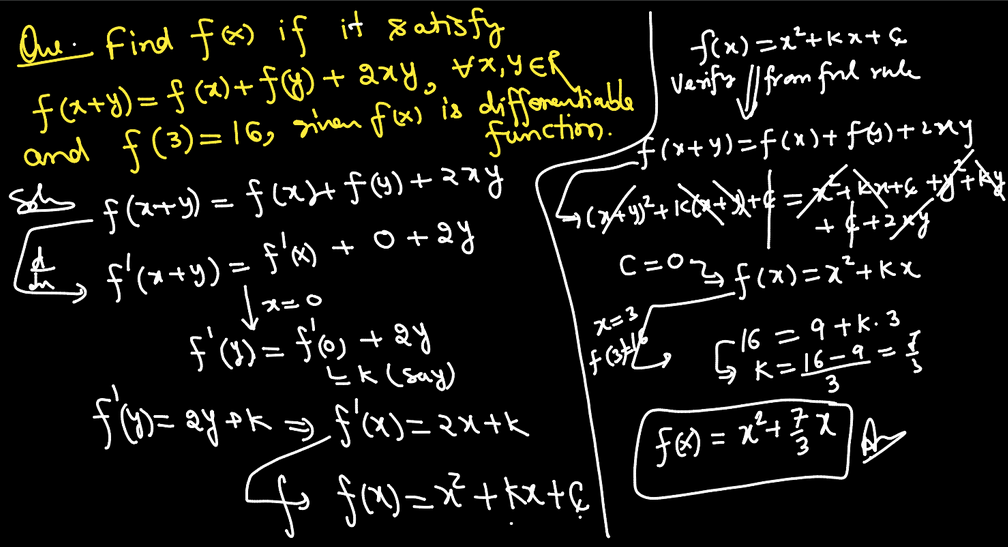 Que. Find f(x) if it satisfy
f(x+y) = f(x) + f(y) + 2xy, ∀x,y∈R
and f(3)=16, given f(x) is differentiable
function.
Soln f(x+y) = f(x) + f(y) + 2xy
d/dx f'(x+y) = f'(x) + 0 + 2y
x=0
f'(y) = f'(0) + 2y
k (say)
f'(y) = 2y + k ⇒ f'(x) = 2x + k
∫ f(x) = x² + kx + C
f(x) = x² + kx + C
Verify from fnl rule
f(x+y) = f(x) + f(y) + 2xy
(x+y)² + k(x+y) + C = x² + kx + C + y² + ky
+ C + 2xy
C = 0 f(x) = x² + kx
x=3
f(3)=16
16 = 9 + k·3
k = (16-9)/3 = 7/3
f(x) = x² + 7/3 x Ans